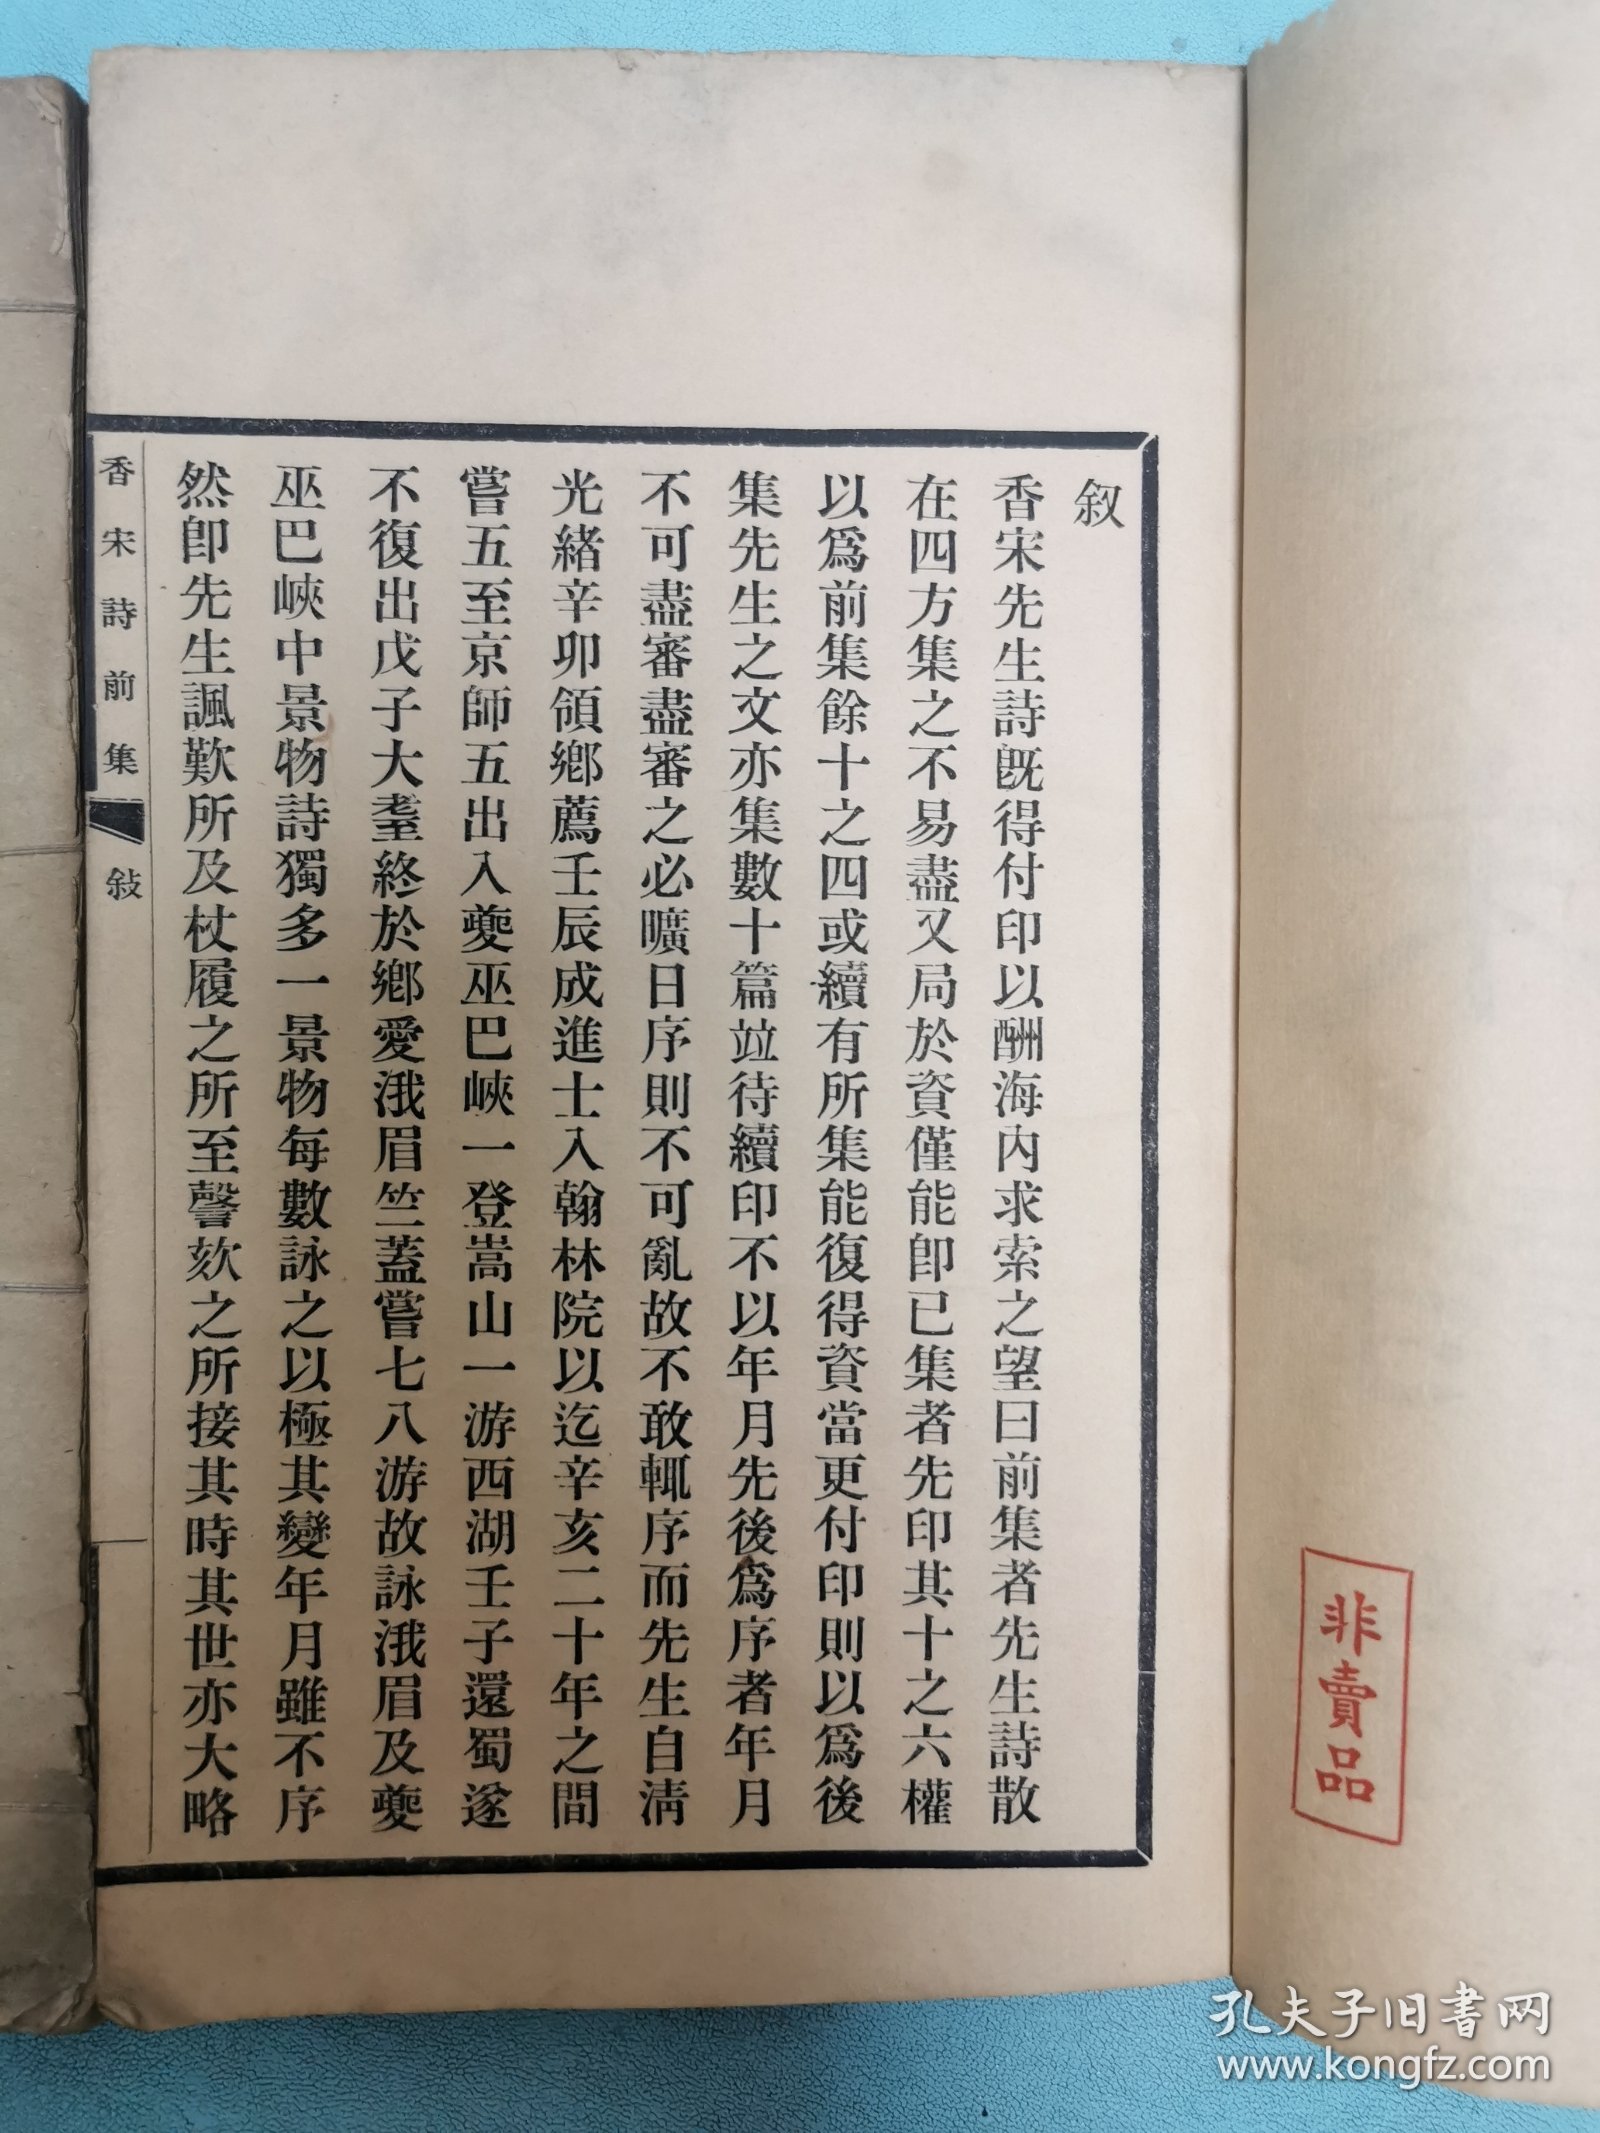 叙
香宋先生詩旣得付印以酬海內求索之望曰前集者先生詩散
在四方集之不易盡又局於資僅能卽已集者先印其十之六權
以爲前集餘十之四或續有所集能復得資當更付印則以爲後
集先生之文亦集數十篇竝待續印不以年月先後爲序者年月
不可盡審盡審之必曠日序則不可亂故不敢輒序而先生自淸
光緒辛卯領鄕薦壬辰成進士入翰林院以迄辛亥二十年之間
嘗五至京師五出入夔巫巴峽一登嵩山一游西湖壬子還蜀遂
不復出戊子大耋終於鄕愛涐眉竺蓋嘗七八游故詠涐眉及夔
巫巴峽中景物詩獨多一景物每數詠之以極其變年月雖不序
然卽先生諷歎所及杖履之所至謦欬之所接其時其世亦大略
香宋詩前集
敍
非賣品
孔夫子旧书网
www.kongfz.com